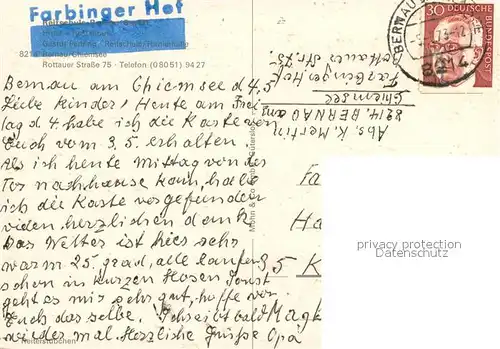 Farbinger Hof
8214 Bernau/Chiemsee
Rottauer Straße 75 · Telefon (0 80 51) 94 27
Bernau am Chiemsee d 4,5
Liebe Kinder! Heute am Frei
tag d 4. habe ich die Karte von
Euch vom 3,5 erhalten.
Als ich heute Mittag von der
Tor nachhause kam, habe
ich die Karte vorgefunden
vielen herzlichen dank
Das Wetter ist hier sehr
warm 25. grad, alle laufen
schon in kurzen Hosen Sonst
geht es mir sehr gut, hoffe von
Euch das selbe. Schreibt bald
wieder mal. Herzliche Grüße Opa
Reiterstübchen
30
DEUTSCHE BUNDESPOST
BERNAU
8214
Abs. K. Mertin
8214 BERNAU am
Chiemsee
Farbinger Hof
Rottauer Str. 75
Fa
Ha
3,5 K
Magk
privacy protection
Datenschutz